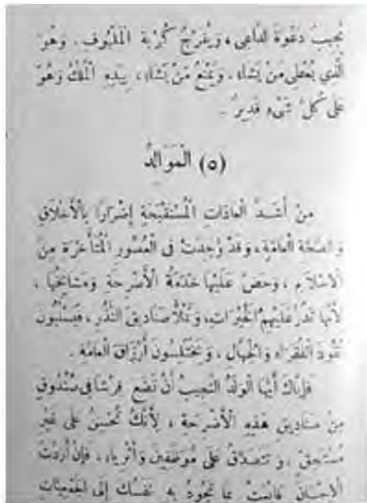 يُجيبُ دَعْوَةَ الدَّاعِى ، وَيُفَرِّجُ كُرْبَةَ الْمَلْهُوفِ . وَهُوَ
الَّذِى يُعْطِى مَنْ يَشَاءُ ، وَيَمْنَعُ مَنْ يَشَاءُ ، بِيَدِهِ الْمُلْكُ وَهُوَ
عَلَى كُلِّ شَىْءٍ قَدِيرٌ .
(٥) الْمَوَالِدُ
مِنْ أَشَدِّ الْعَادَاتِ الْمُسْتَقْبَحَةِ إِضْرَارًا بِالْأَخْلَاقِ
وَالصِّحَّةِ الْعَامَّةِ ، وَقَدْ وُجِدَتْ فِى الْعُصُورِ الْمُتَأَخِّرَةِ مِنَ
الْاِسْلَامِ ، وَحَضَّ عَلَيْهَا خَدَمَةُ الْأَضْرِحَةِ وَمَشَايِخُهَا ،
لِأَنَّهَا تُدِرُّ عَلَيْهِمُ الْخَيْرَاتِ ، وَتَمْلَأُ صَنَادِيقَ النُّذُرِ ، فَيَسْلُبُونَ
نُقُودَ الْفُقَرَاءِ وَالْجُهَّالِ ، وَيَخْتَلِسُونَ أَرْزَاقَ الْعَامَّةِ .
فَإِيَّاكَ أَيُّهَا الْوَلَدُ النَّجِيبُ أَنْ تَضَعَ قِرْشًا فِى صُنْدُوقٍ
مِنْ صَنَادِيقِ هٰذِهِ الْأَضْرِحَةِ ، لِأَنَّكَ تُحْسِنُ عَلَى غَيْرِ
مُسْتَحِقٍّ ، وَتَتَصَدَّقُ عَلَى مُوَظَّفِينَ وَأَثْرِيَاءَ ، فَإِنْ أَرَدْتَ
الْاِحْسَانَ فَابْعَثْ بِمَا تَجُودُ بِهِ نَفْسُكَ إِلَى الْجَمْعِيَّاتِ